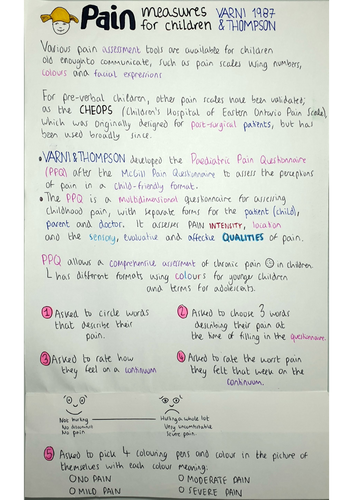 Pain measures for children VARNI 1987 & THOMPSON
Various pain assessment tools are available for children
old enough to communicate, such as pain scales using numbers,
colours and facial expressions
For pre-verbal children, other pain scales have been validated;
as the CHEOPS (Children's Hospital of Eastern Ontario Pain Scale),
which was originally designed for post-surgical patients, but had
been used broadly since.
• VARNI & THOMPSON developed the Paediatric Pain Questionnaire
(PPQ) after the McGill Pain Questionnaire to assess the perceptions
of pain in a child-friendly format.
• The PPQ is a multidimensional questionnaire for assessing
childhood pain, with separate forms for the patient (child),
parent and doctor. It assesses PAIN INTENSITY, location
and the sensory, evaluative and affective QUALITIES of pain.
PPQ allows a comprehensive assessment of chronic pain in children.
has different formats using colours for younger children
and terms for adolescents.
1 Asked to circle words
that describe their
pain.
2 Asked to choose 3 words
describing their pain at
the time of filling in the questionnaire.
3 Asked to rate how
they feel on a continuum
4 Asked to rate the worst pain
they felt that week on the
continuum.
Not hurting
No discomfort
No pain
Hurting a whole lot
Very uncomfortable
Severe pain
5 Asked to pick 4 colouring pens and colour in the picture of
themselves with each colour meaning:
NO PAIN
MODERATE PAIN
MILD PAIN
SEVERE PAIN